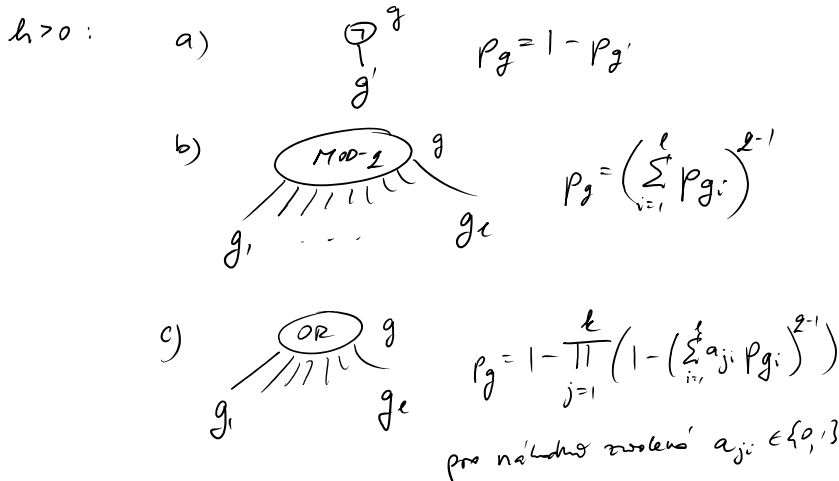 h>0 :
a) ¬ g
g'
p_g = 1 - p_{g'}
b) MOD-q g
g_1 . . . g_ℓ
p_g = (∑_{i=1}^{ℓ} p_{g_i})^{q-1}
c) OR g
g_1 g_ℓ
p_g = 1 - ∏_{j=1}^{k} (1 - (∑_{i=1}^{ℓ} a_{ji} p_{g_i})^{q-1})
pro náhodně zvolená a_{ji} ∈ {0,1}